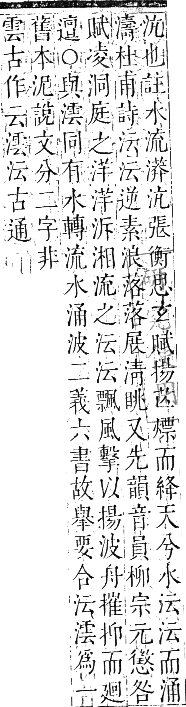 沇也註水流漭沆張衡思玄賦揚芒熛而絳天兮水沄沄而涌
濤杜甫詩沄沄逆素浪落落展淸眺又先韻音員柳宗元懲咎
賦凌洞庭之洋洋泝湘流之沄沄飄風擊以揚波舟摧抑而廻
邅○與澐同有水轉流水涌波二義六書故舉要合沄澐爲一
舊本泥說文分二字非
雲古作云澐沄古通